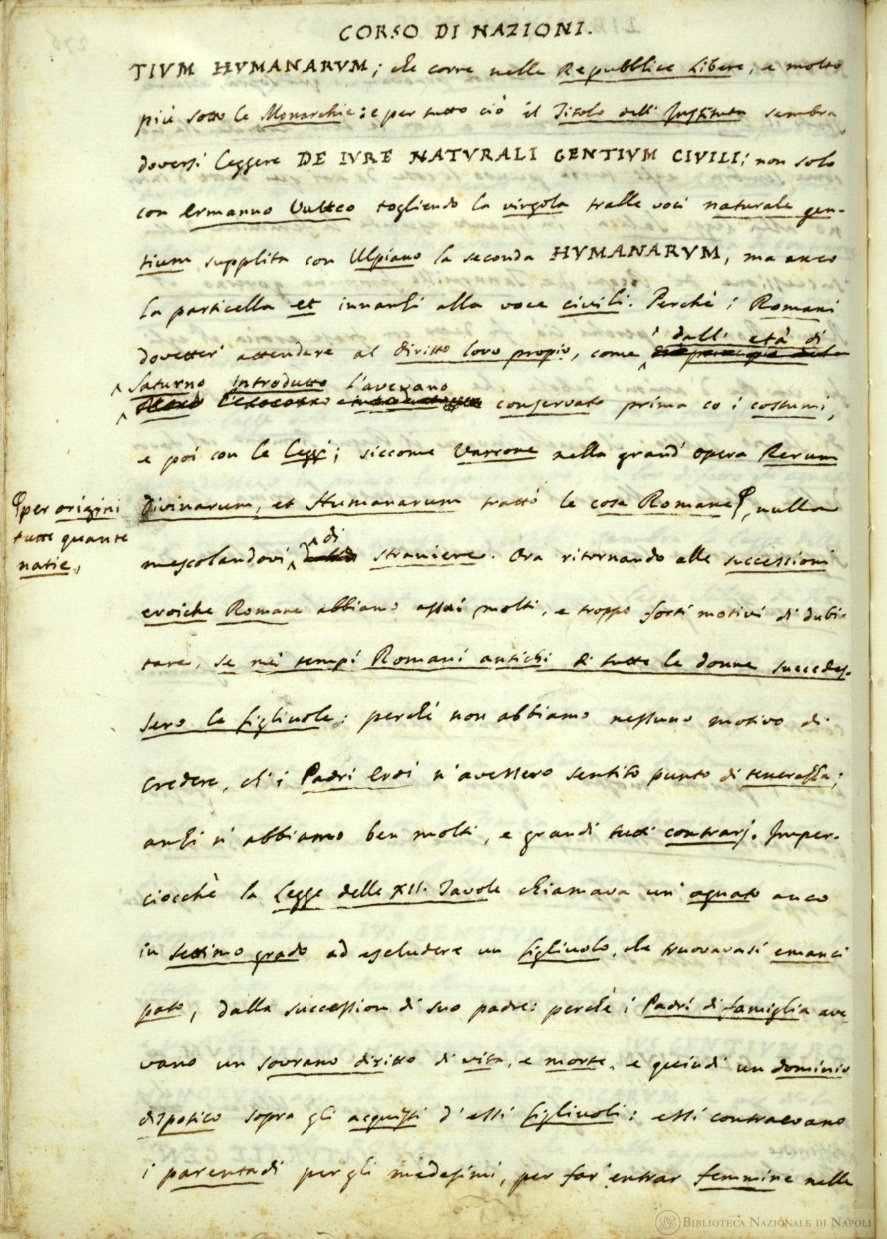 CORSO DI NAZIONI.
TIVM HVMANARVM; che corre nelle Repubblice Libere, e molto
più sotto le Monarchie: e per tutto ciò il Titolo dell' Instituta sembra
doversi leggere DE IVRE NATVRALI GENTIVM CIVILI; non solo
con Ermanno Vulteo togliendo la virgola tralle voci naturale gen-
tium supplita con Ulpiano la seconda HVMANARVM, ma anco
la particella et innanzi alla voce civili. Perchè i Romani
dovetter' attendere al diritto loro propio, come
dall' età di
Saturno introdutto l'avevano
conservato prima co i costumi,
e poi con le leggi; siccome Varrone nella grand' opera Rerum
Divinarum, et Humanarum trattò le cose Romane, nulla
per origini
tutte quante
natie,
mescolandovi di straniere. Ora ritornando alle successioni
eroiche Romane abbiamo assai molti, e troppo forti motivi di dubi-
tare, se nei tempi Romani antichi di tutte le donne succedes-
sero le figliuole: perchè non abbiamo nessuno motivo di
credere, ch' i Padri Eroi n'avessero sentito punto di tenerezza;
anzi n'abbiamo ben molti, e grandi tutti contrarj. Imper-
ciocchè la Legge delle XII. Tavole chiamava un' agnato anco
in settimo grado ad escludere un figliuolo, che truovavasi emanci
pato, dalla succession di suo padre: perchè i Padri di famiglia ave-
vano un sovrano diritto di vita, e morte, e quindi un dominio
dispotico sopra gli acquisti d'essi figliuoli: essi contraevano
i parentadi per gli medesimi, per far' entrar femmine nelle
BIBLIOTECA NAZIONALE DI NAPOLI